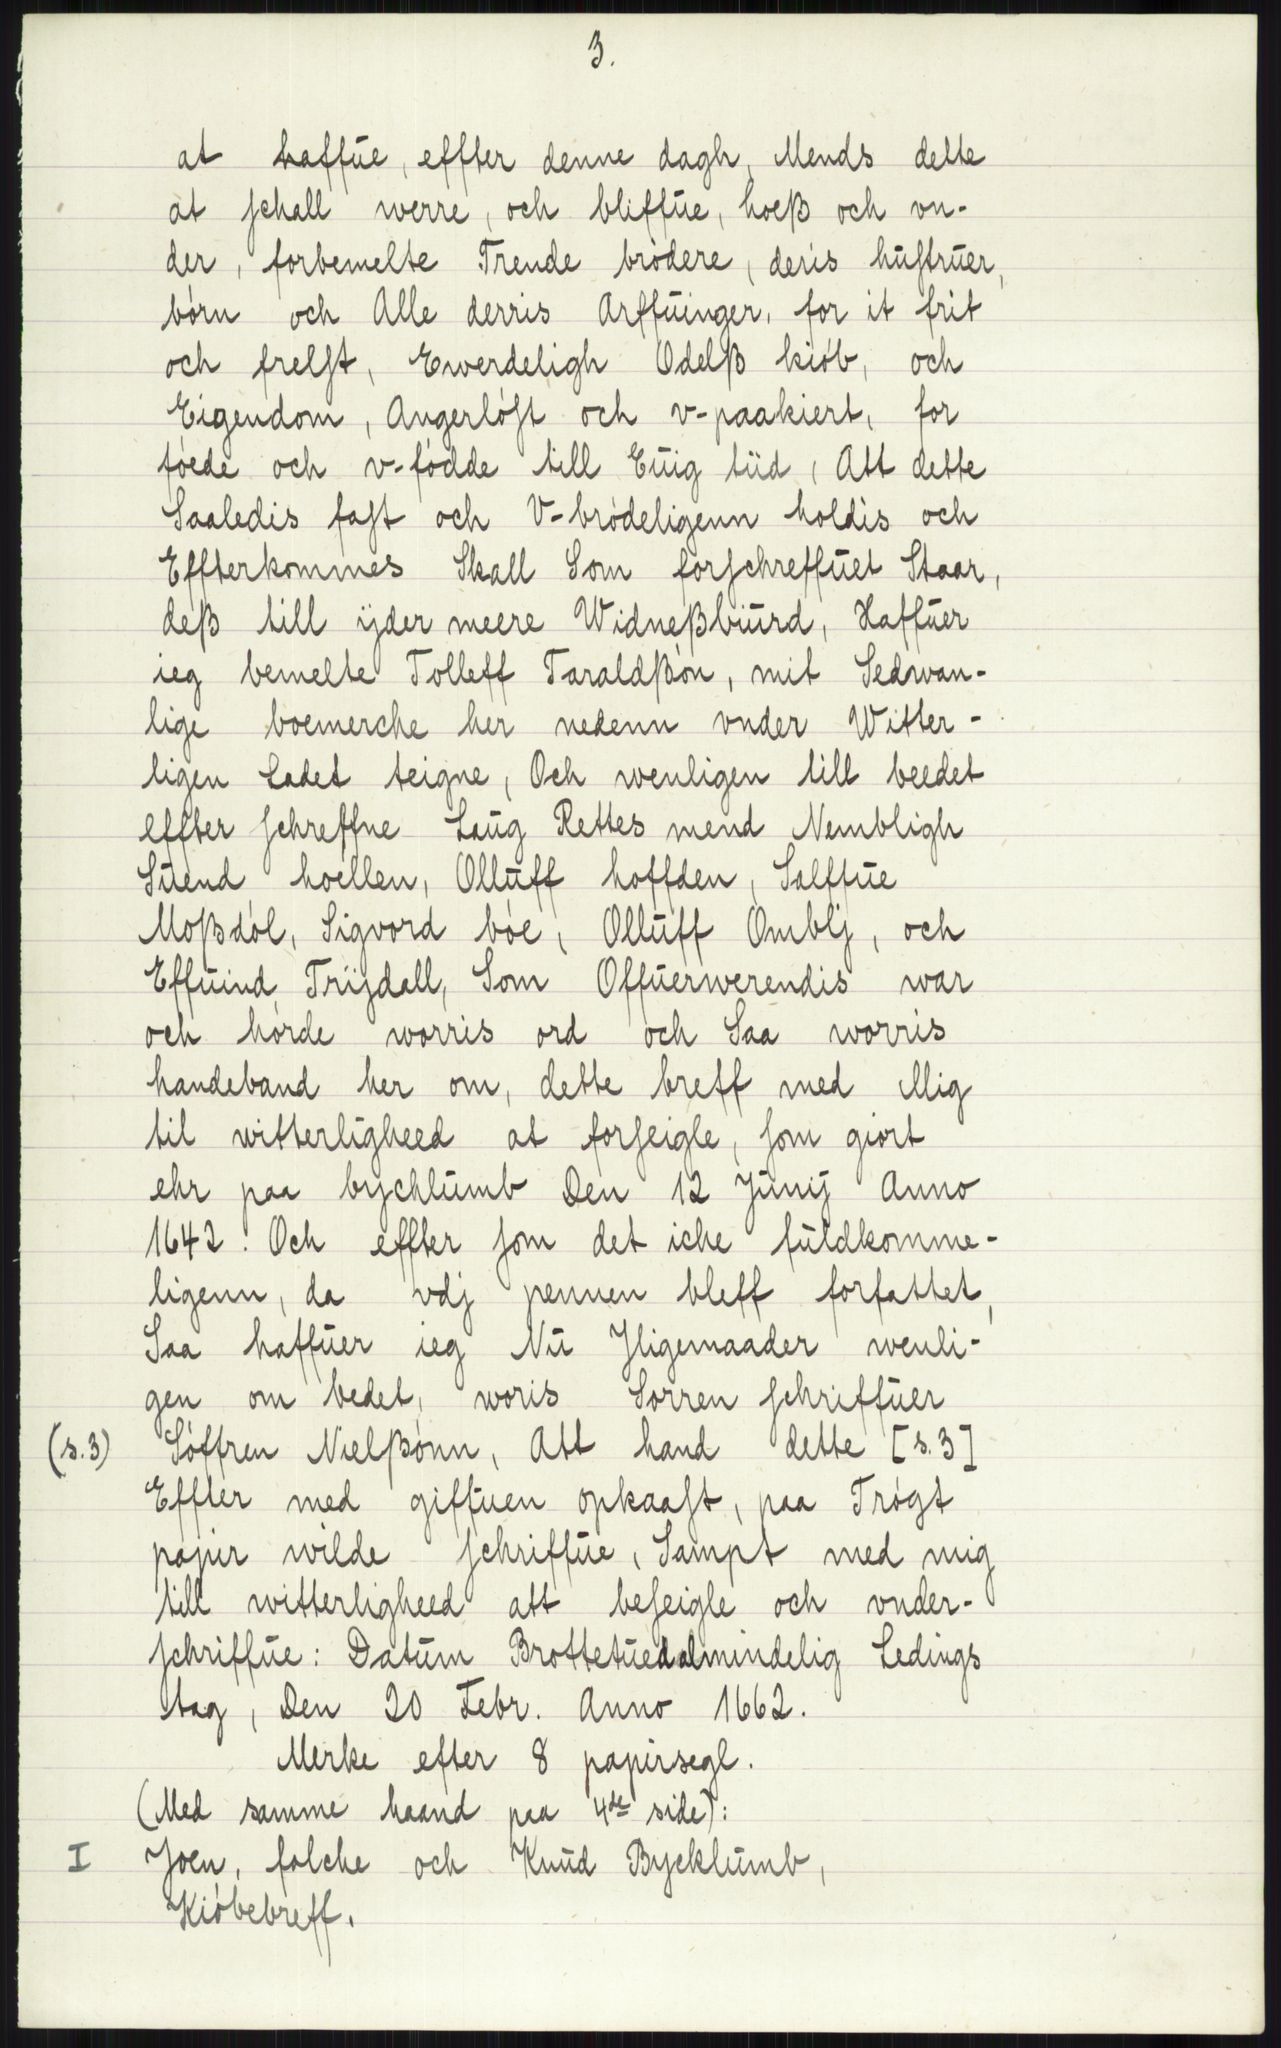 3.
at haffue, effter denne dagh, Mends dette
at schall werre, och bliffue, hoeß och vn-
der, forbemelte Trende brødere, deris hustruer,
børn och Alle derris Arffuinger, for it frit
och frelst, Ewerdeligh Odelß kiøb, och
Eigendom, Angerløst och v-paakiert, for
føede och v-fødde till Euig tüd, Att dette
Saaledis fast och V-brødeligenn holdis och
Effterkommes Skall Som forschreffuet Staar,
deß till ÿder meere Widneßbiurd, Haffuer
ieg bemelte Tolleff Taraldßøn, mit Sedwan-
lige boemerche her nedenn vnder Witter-
ligen Ladet teigne, Och wenligen till beedet
effter schreffne Laug Rettes mend Nembligh
Suend hoellen, Olluff hoffden, Salffue
Moßdøl, Sigvord bøe, Olluff Omblj, och
Effuind Trijdall, Som Offuerwerendis war
och hørde worris ord och Saa worris
handeband her om, dette breff med Mig
til witterligheed at forseigle, som giort
ehr paa bychlumb Den 12 Junij Anno
1642. Och effter som det iche fuldkomme-
ligenn, da vdj pennen bleff forfattet,
Saa haffuer ieg Nu Jligemaader wenli-
gen om bedet, woris Sorren schriffuer
(s.3) Søffren Nielßønn, Att hand dette [s.3]
Effter med giffuen opkaast, paa Trøgt
papir wilde schriffue, Sampt med mig
till witterligheed att beseigle och vnder-
schriffue: Datum Brottetued almindelig Ledings
tag, Den 20 Febr. Anno 1662.
Merke efter 8 papirsegl.
(Med samme haand paa 4de side):
I Joen, folche och Knud Bycklumb,
Kiøbebreff.